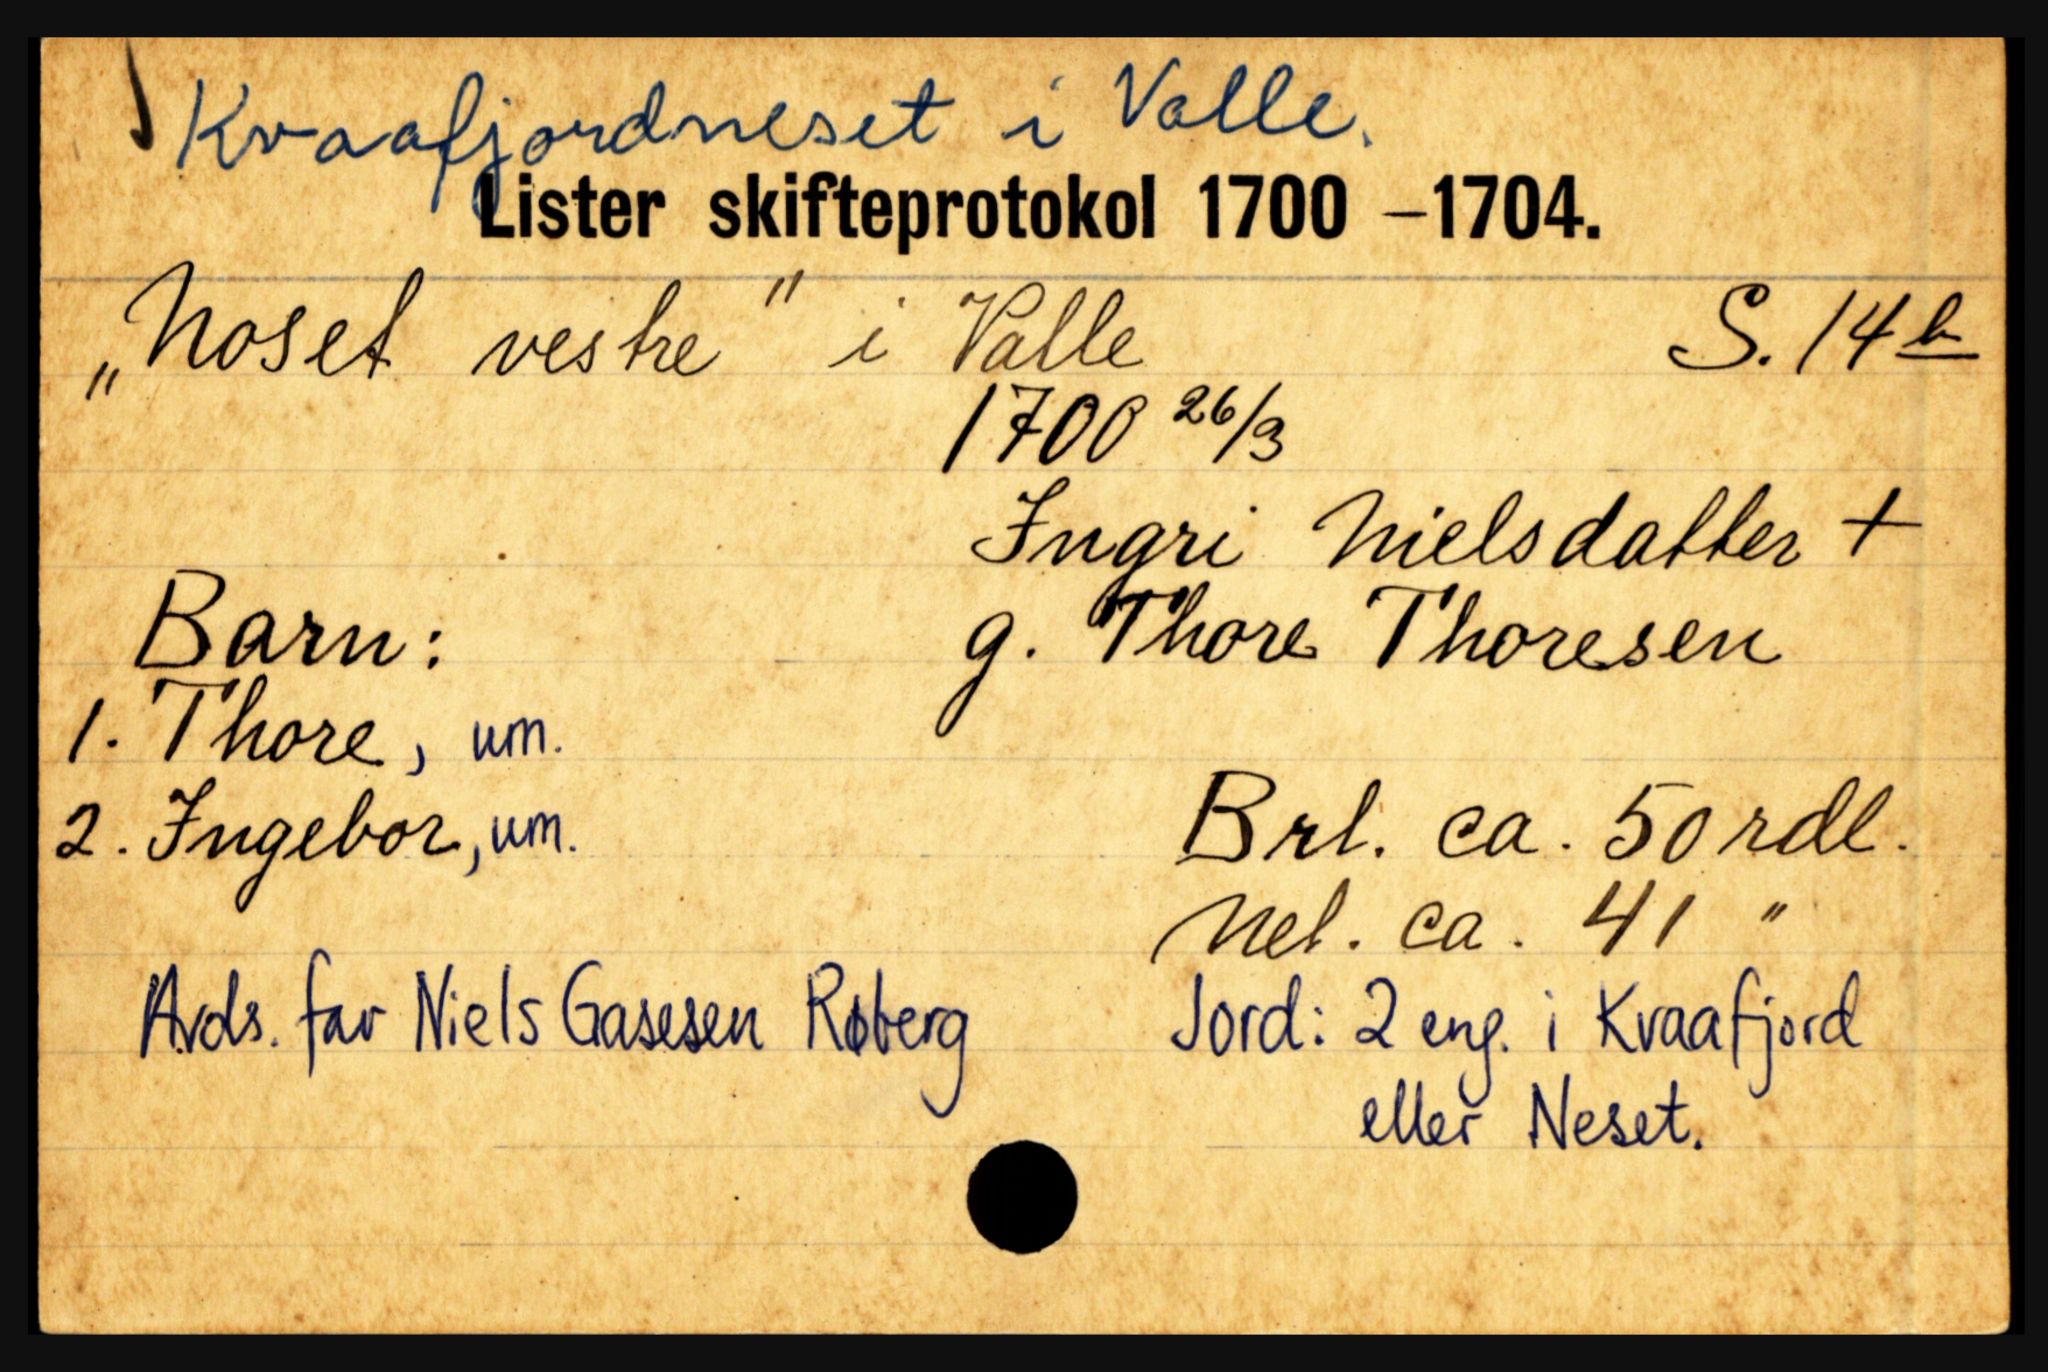 Kvaafjordneset i Valle.
Lister skifteprotokol 1700 –1704.
„Noset vestre" i Valle S. 14b
1700 26/3
Ingri Nielsdatter +
Barn: g. Thore Thoresen
1. Thore, um.
2. Ingebor, um. Brl. ca. 50 rdl.
Nel. ca. 41 "
Avds. far Niels Gasesen Røberg Jord: 2 eng. i Kvaafjord
eller Neset.